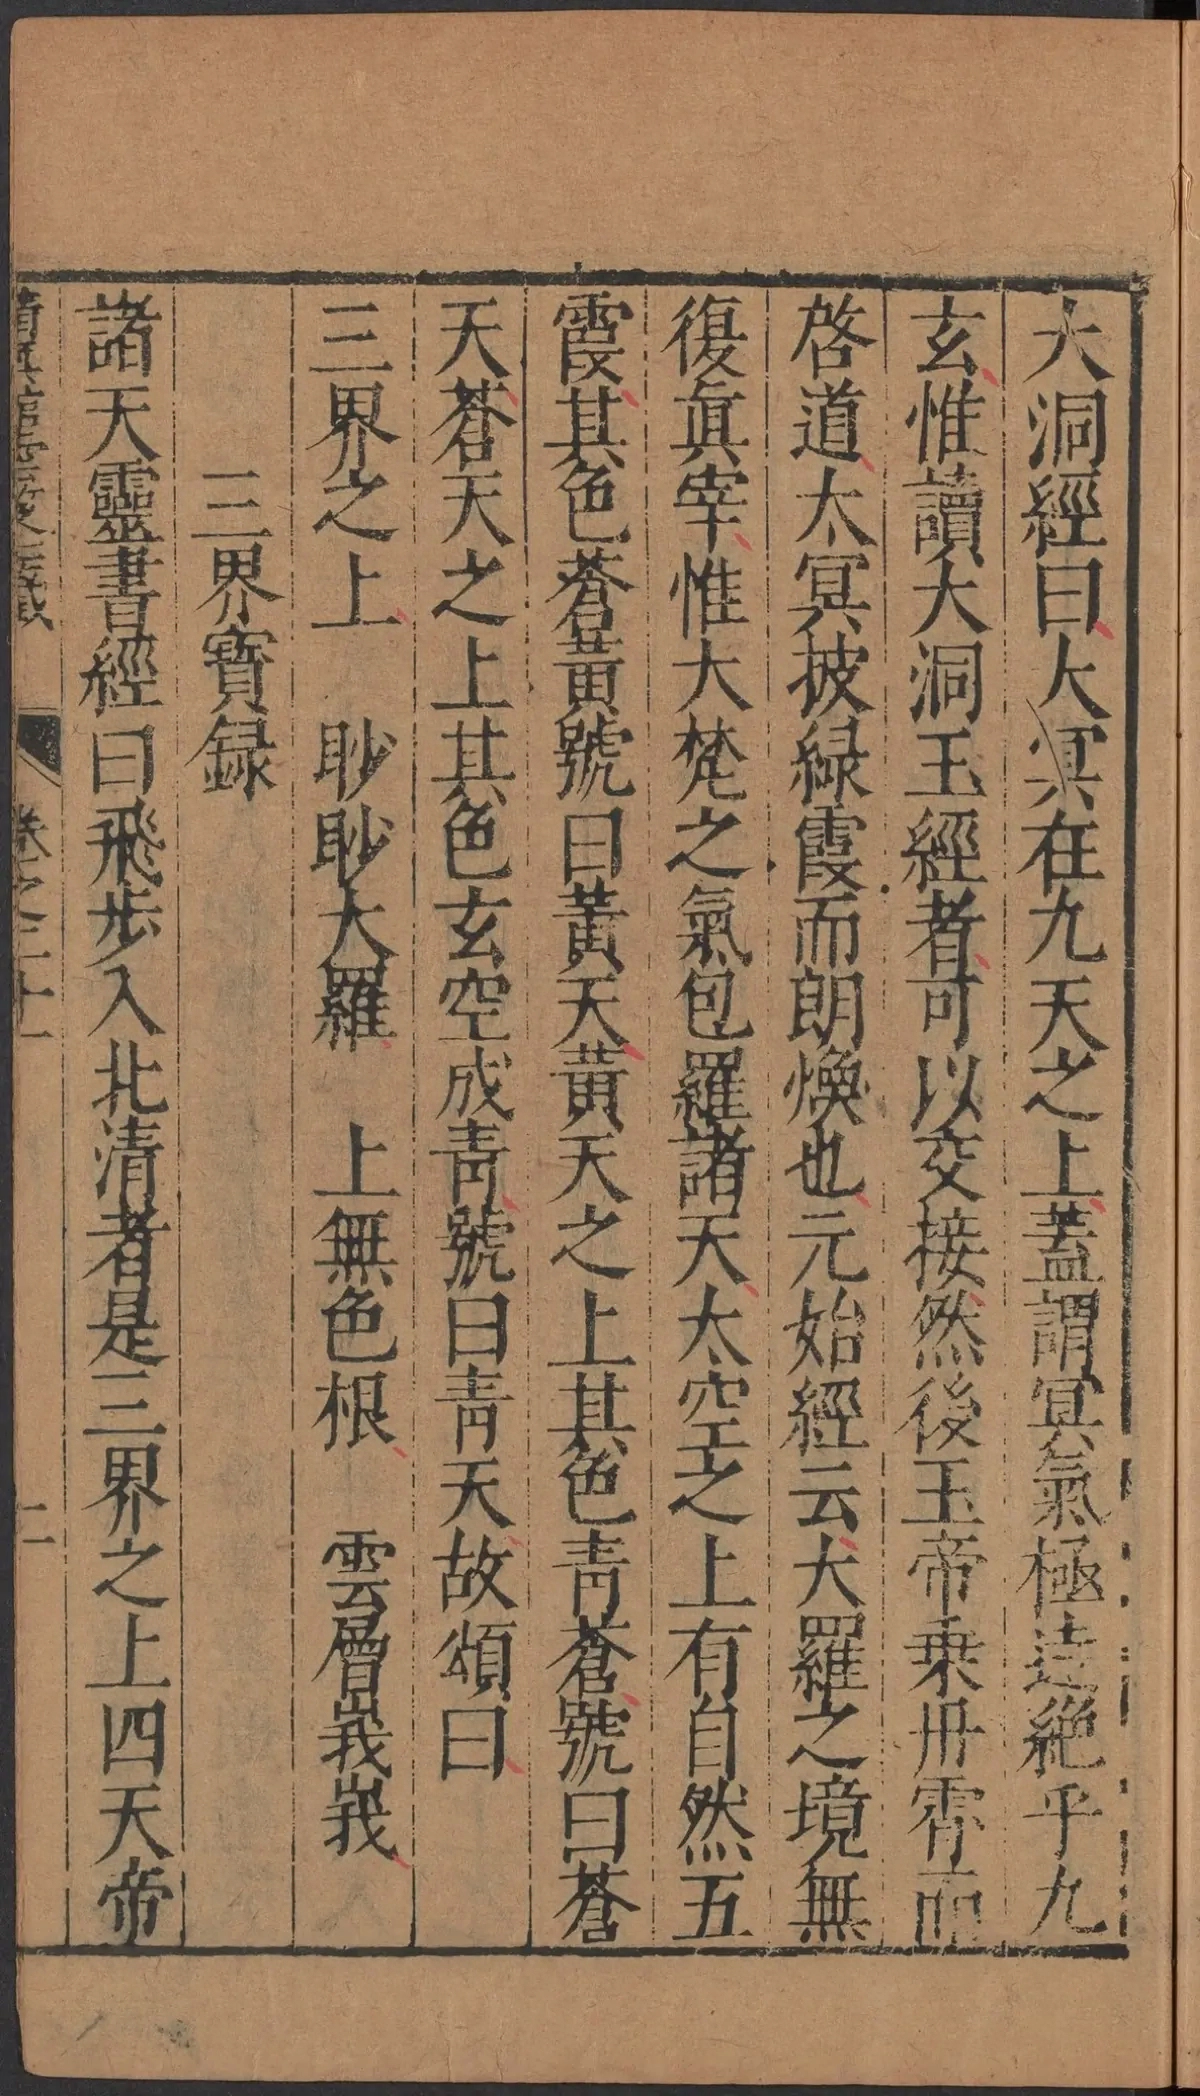 大洞經曰大冥在九天之上蓋謂冥氣極遠絶乎九
玄惟讀大洞玉經者可以交接然後玉帝乗丹霄而
啓道太冥披緑霞而朗煥也元始經云大羅之境無
復眞宰惟大梵之氣包羅諸天太空之上有自然五
霞其色蒼黃號曰黃天黃天之上其色青蒼號曰蒼
天蒼天之上其色玄空成青號曰青天故頌曰
三界之上 眇眇大羅 上無色根 雲層峩峩
三界寳録
諸天靈書經曰飛步入北清者是三界之上四天帝
卷之三十一
二